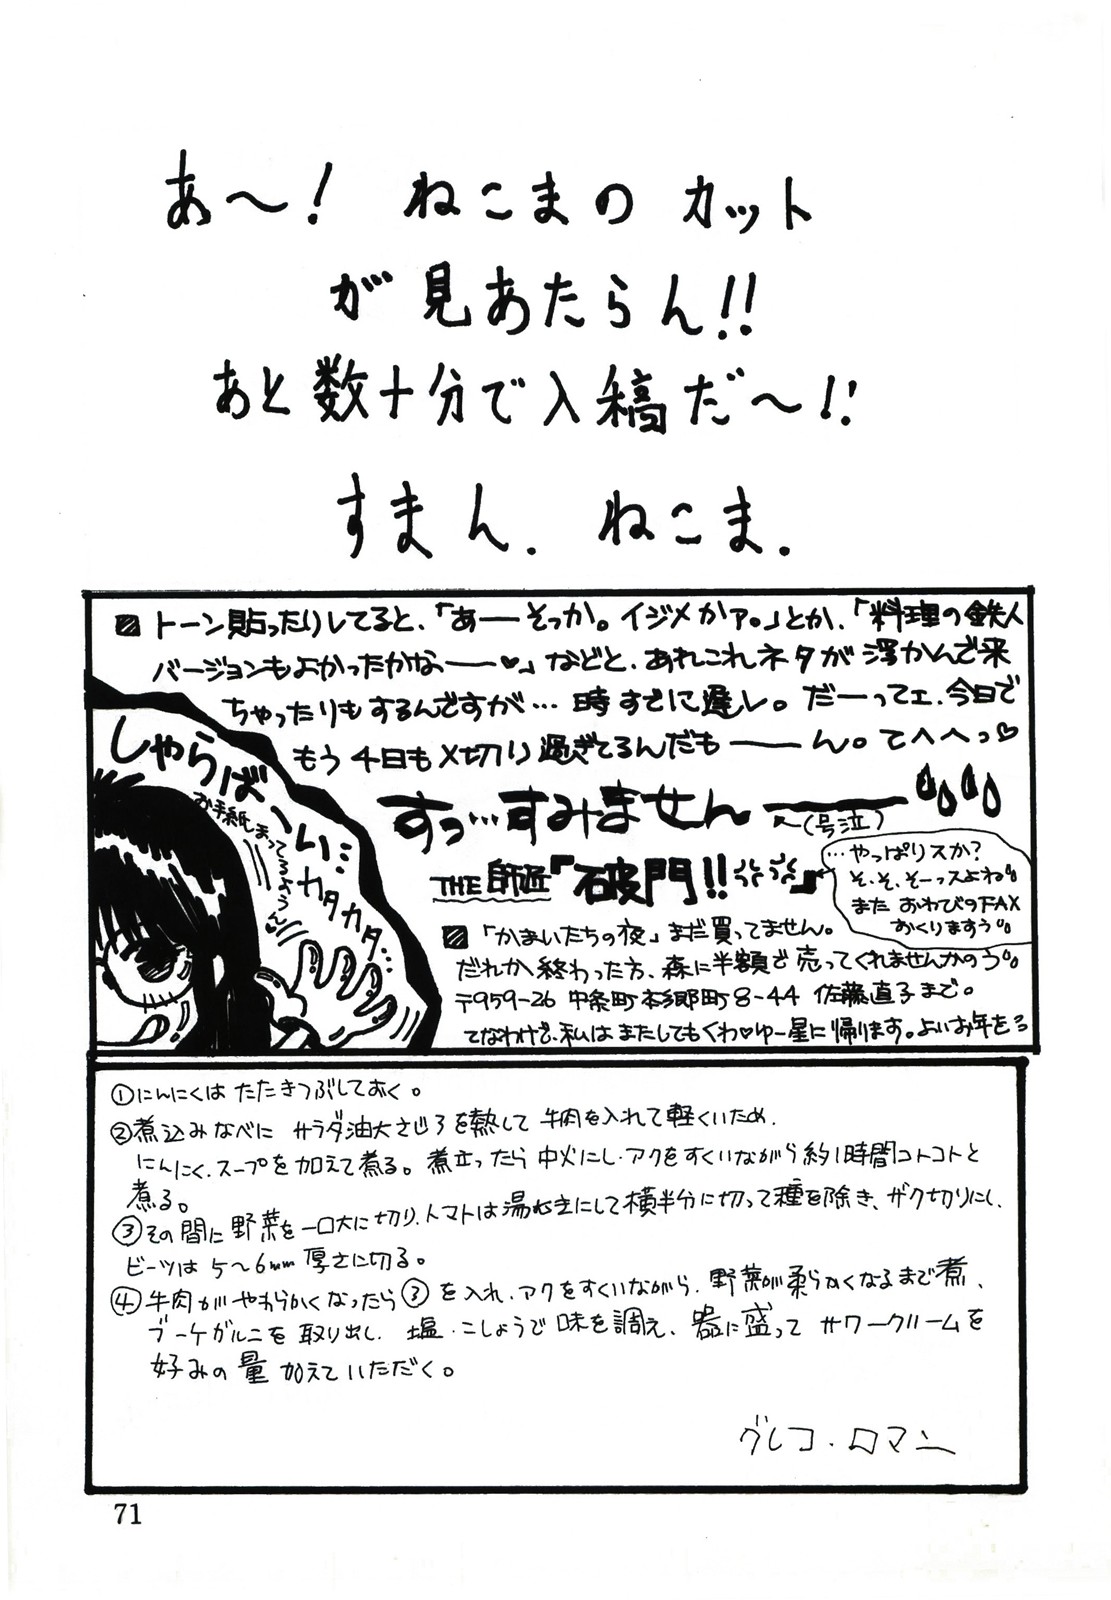 あ〜! ねこまの カット
が見あたらん!!
あと数十分で入稿だ〜!!
すまん. ねこま.
トーン貼ったりしてると、「あーそっか。イジメかァ。」とか、「料理の鉄人
バージョンもよかったかなー♥」などと、あれこれネタが浮かんで来
ちゃったりもするんですが… 時すでに遅し。だーってェ、今日で
もう4日も〆切り過ぎてるんだもーーん。てへへっ♡
すっ…すみませんーー
(号泣)
THE 師匠『破門!!』
…やっぱりスか?
そ、そ、そーっスよね
また おわびのFAX
おくりますぅ
しゃらば〜い…
お手紙まってるよぅん♥
カタカタ…
「かまいたちの夜」まだ買ってません。
だれか終わった方、森に半額で売ってくれませんかのう
〒959-26 中条町本郷町8-44 佐藤直子まで。
てなわけで、私はまたしてもくわ♥ゆー星に帰ります。よいお年をろ
①にんにくは たたきつぶしておく。
②煮込みなべに サラダ油大さじ3を熱して 牛肉を入れて軽くいため、
にんにく、スープを加えて煮る。煮立ったら中火にし、アクをすくいながら約1時間コトコトと
煮る。
③その間に野菜を一口大に切り、トマトは湯むきにして横半分に切って種を除き、ザク切りにし、
ビーツは5〜6mm厚さに切る。
④牛肉がやわらかくなったら③を入れ、アクをすくいながら、野菜が柔らかくなるまで煮、
ブーケガルニを取り出し、塩・こしょうで味を調え、器に盛ってサワークリームを
好みの量加えていただく。
グレコ・ロマン
71